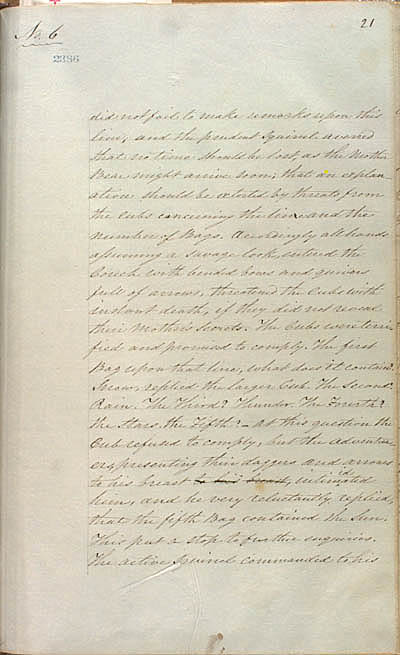 No. 6
21
2386
did not fail to make remarks upon this
line, and the prudent Squirrel averred
that no time should be lost, as the Mother
Bear might arrive soon; that an explan
ation should be extorted by threats from
the Cubs concerning the line and the
number of Bags. Accordingly all hands
assuming a Savage look, entered the
Couch with bended bows and quivers
full of arrows, threatened the Cubs with
instant death, if they did not reveal
their Mother's Secrets. The Cubs were terri
fied and promised to comply. The first
Bag upon that line, what does it contain?
Snow, replied the larger Cub. The Second?
Rain. The Third? Thunder. The Fourth?
the Stars, the Fifth? - At this question the
Cub refused to comply, but the adventur
ers presenting their daggers and arrows
to his breast to his breast, intimidated
him, and he very reluctantly replied,
that the fifth Bag contained the Sun.
This put a stop to further enquiries.
The active Squirrel commanded to his